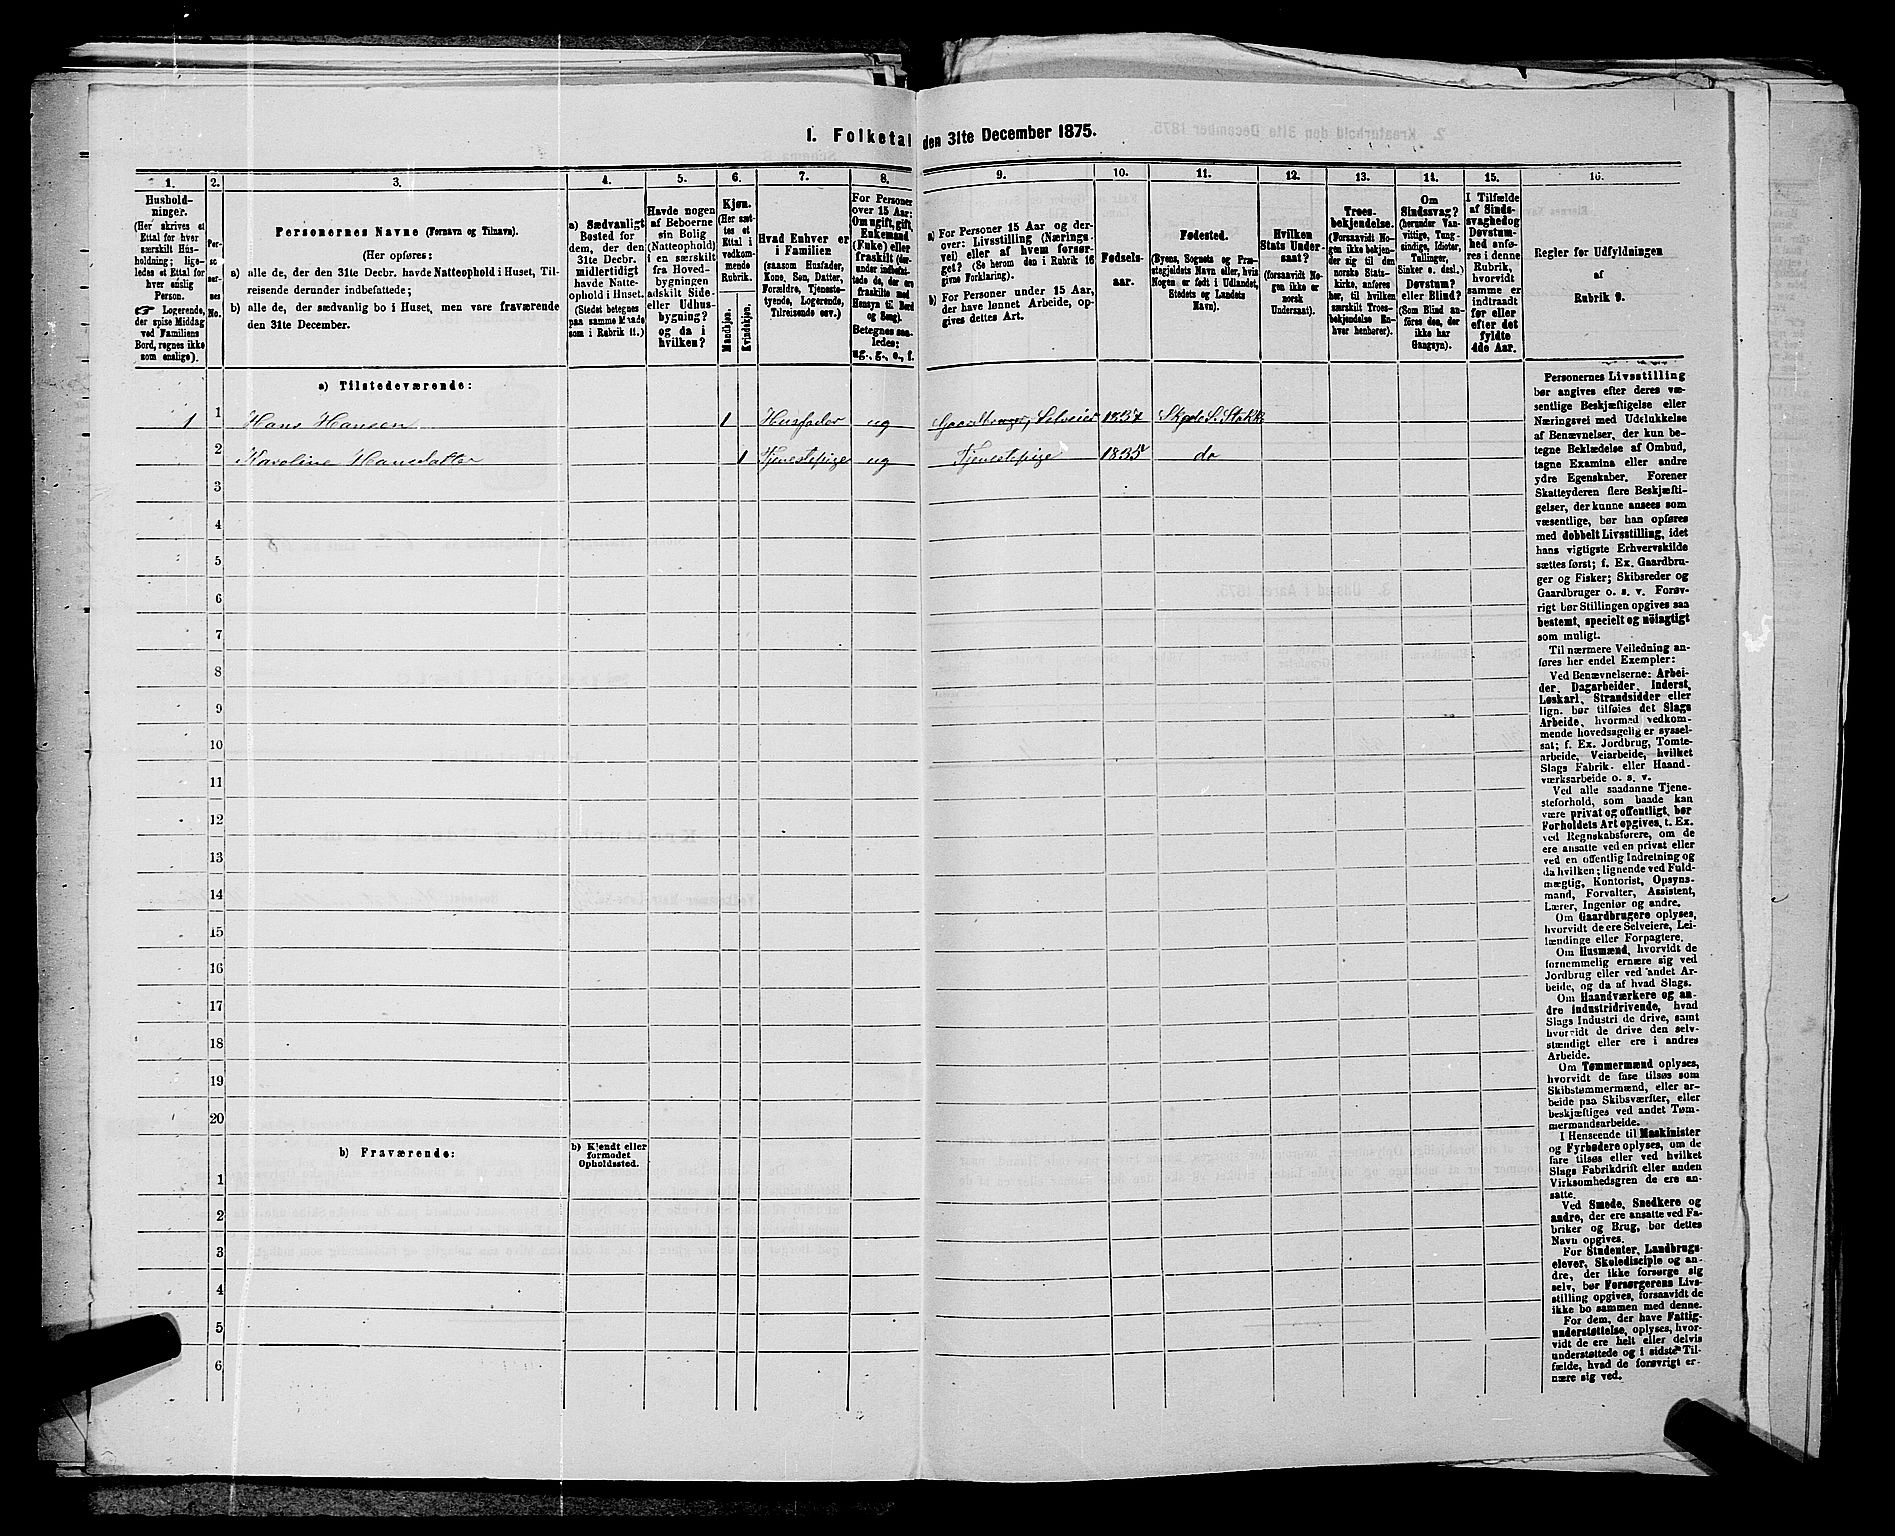 1. Folketal den 31te December 1875.
1. 2. 3. 4. 5. 6. 7. 8. 9. 10. 11. 12. 13. 14. 15. 16.
Hushold-
ninger.
(Her skrives et
Ettal for hver
særskilt Hus-
holdning; lige-
ledes et Ettal for
hver enslig
Person.
☞ Logerende,
der spise Middag
ved Familiens
Bord, regnes ikke
som enslige).
Per-
so-
ner-
nes
No.
Personernes Navne (Fornavn og Tilnavn).
(Her opføres:
a) alle de, der den 31te Decbr. havde Natteophold i Huset, Til-
reisende derunder indbefattede;
b) alle de, der sædvanlig bo i Huset, men vare fraværende
den 31te December.
a) Sædvanligt
Bosted for
dem, der den
31te Decbr.
midlertidigt
havde Natte-
ophold i Huset.
(Stedet betegnes
paa samme Maade
som i Rubrik 11.)
Havde nogen
af Beboerne
sin Bolig
(Natteophold)
i en særskilt
fra Hoved-
bygningen
adskilt Side-
eller Udhus-
bygning?
og da i
hvilken?
Kjøn.
(Her sæt-
tes et
Ettal i
vedkom-
mende
Rubrik.
Mandkjøn.
Kvindekjøn.
Hvad Enhver er
i Familien
(saasom Husfader,
Kone, Søn, Datter,
Forældre, Tjeneste-
tyende, Logerende,
Tilreisende osv.)
For Personer
over 15 Aar:
Om ugift, gift,
Enkemand
(Enke) eller
fraskilt (der-
under indbefat-
tede de, der ere
fraskilte med
Hensyn til Bord
og Seng).
Betegnes saa-
ledes:
ug., g., e., f.
a) For Personer 15 Aar og der-
over: Livsstilling (Nærings-
vei) eller af hvem forsør-
get? (Se herom den i Rubrik 16
givne Forklaring).
b) For Personer under 15 Aar,
der have lønnet Arbeide, op-
gives dettes Art.
Fødsels-
aar.
Fødested.
(Byens, Sognets og Præ-
stegjeldets Navn eller, hvis
Nogen er født i Udlandet,
Stedets og Landets
Navn).
Hvilken
Stats Under-
saat?
(forsaavidt No-
gen ikke er
norsk
Undersaat).
Troes-
bekjendelse.
(Forsaavidt No-
gen ikke bekjen-
der sig til den
norske Stats-
kirke, anføres
her, til hvilken
særskilt Troes-
bekjendelse En-
hver henhører).
Om
Sindssvag?
(herunder Van-
vittige, Tung-
sindige, Idioter,
Tullinger,
Sinker o. desl.)
Døvstum?
eller Blind?
(Som Blind an-
føres den, der
ikke har
Gangsyn).
I Tilfælde
af Sinds-
svaghed og
Døvstum-
hed anfø-
res i denne
Rubrik,
hvorvidt
samme er
indtraadt
før eller
efter det
fyldte
4de Aar.
Regler for Udfyldningen
af
Rubrik 9.
a) Tilstedeværende:
1 1 Hans Hansen 1 Husfader ug Gaardbruger, Selveier 1837
2 Karoline Hansdatter 1 Tjenestepige ug Tjenestepige 1835 do
3
4
5
6
7
8
9
10
11
12
13
14
15
16
17
18
19
20
b) Fraværende:
b) Kjendt eller
formodet
Opholdssted.
1
2
3
4
5
6
Personernes Livsstilling
bør angives efter deres væ-
sentlige Beskjæftigelse eller
Næringsvei med Udelukkelse
af Benævnelser, der kun be-
tegne Beklædelse af Ombud,
tagne Examina eller andre
ydre Egenskaber. Forener
Skatteyderen flere Beskjæfti-
gelser, der kunne ansees som
væsentlige, bør han opføres
med dobbelt Livsstilling, idet
hans vigtigste Erhvervskilde
sættes først; f. Ex. Gaardbru-
ger og Fisker; Skibsreder og
Gaardbruger o. s. v. Forøv-
rigt bør Stillingen opgives saa
bestemt, specielt og nöiagtigt
som muligt.
Til nærmere Veiledning an-
føres her endel Exempler:
Ved Benævnelserne: Arbei-
der, Dagarbeider, Inderst,
Løskarl, Strandsidder eller
lign. bør tilføies det Slags
Arbeide, hvormed vedkom-
mende hovedsagelig er syssel-
sat; f. Ex. Jordbrug, Tomte-
arbeide, Veiarbeide, hvilket
Slags Fabrik- eller Haand-
værksarbeide o. s. v.
Ved alle saadanne Tjene-
steforhold, som baade kan
være privat og offentligt, bør
Forholdets Art opgives, t. Ex.
ved Regnskabsførere, om de
ere ansatte ved en privat eller
ved en offentlig Indretning og
da hvilken; lignende ved Fuld-
mægtig, Kontorist, Opsyns-
mand, Forvalter, Assistent,
Lærer, Ingeniør og andre.
Om Gaardbrugere oplyses,
hvorvidt de ere Selveiere, Lei-
lændinge eller Forpagtere.
Om Husmænd, hvorvidt de
fornemmelig ernære sig ved
Jordbrug eller ved andet Ar-
beide, og da af hvad Slags.
Om Haandværkere og an-
dre industridrivende, hvad
Slags Industri de drive, samt
hvorvidt de drive den selv-
stændigt eller ere i andres
Arbeide.
Om Tømmermænd oplyses,
hvorvidt de fare tilsøs som
Skibstømmermænd, eller ar-
beide paa Skibsværfter, eller
beskjæftiges ved andet Tøm-
mermandsarbeide.
I Henseende til Maskinister
og Fyrbødere oplyses, om de
fare tilsøs eller ved hvilket
Slags Fabrikdrift eller anden
Virksomhedsgren de ere an-
satte.
Ved Smede, Snedkere og
andre, der ere ansatte ved Fa-
briker og Brug, bør dettes
Navn opgives.
For Studenter, Landbrugs-
elever, Skoledisciple og an-
dre, der ikke forsørge sig
selv, bør Forsørgerens Livs-
stilling opgives, forsaavidt de
ikke bo sammen med denne.
For dem, der have Fattig-
understøttelse, oplyses, hvor-
vidt de ere helt eller delvis
understøttede og i sidste Til-
fælde, hvad de forøvrigt er-
nære sig ved.